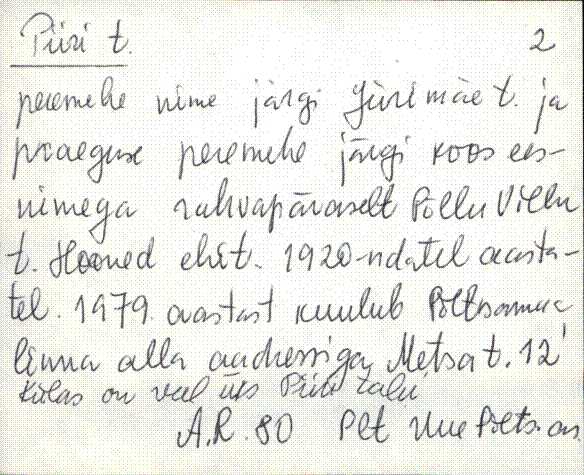 Piiri t. 2
peremehe nime järgi Jürimäe t. ja
praeguse peremehe järgi koos ees-
nimega rahvapäraselt Põllu Villu
t. Hooned ehit. 1920-ndatel aasta-
tel. 1979. aastast kuulub Põltsamaa
linna alla aadressiga Metsa t. 12
Külas on veel üks Piiri talu
A.R. 80 Plt Uue Põlts. as.